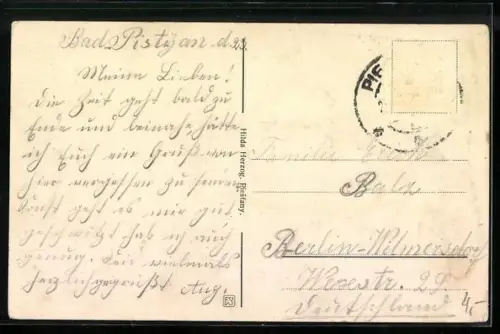 Bad Pistýan d.23.
Meine Lieben!
Die Zeit geht bald zu
Ende und beinahe hätte
ich Euch ein Gruß von
hier vergessen zu senden
sonst geht es mir gut,
geschwitzt hab ich auch
genug. Seid vielmals
herzlich gegrüßt Aug.
Hilda Herzog, Piešťany.
PIE
Familie
Balz
Berlin-Wilmersdorf
Weserstr. 29
Deutschland
4,-